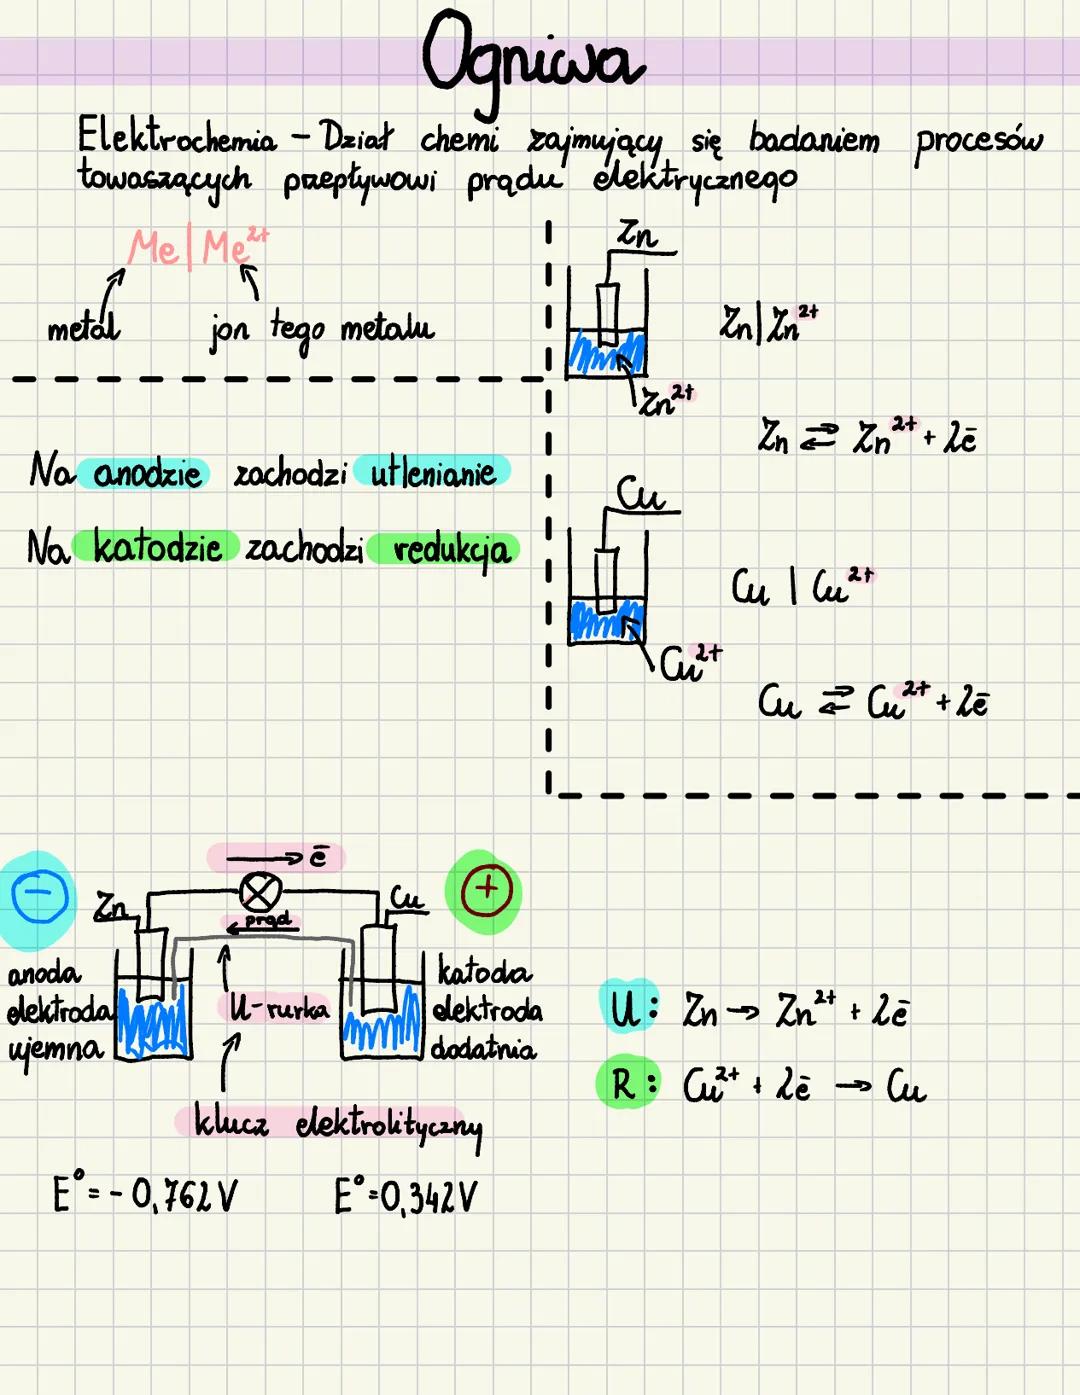 Ogniwa
Elektrochemia – Dział chemi zajmujący się badaniem procesów
towaszących przepływowi prądu elektrycznego
Me | Me²⁺
metal
jon tego metalu
Na anodzie zachodzi utlenianie
Na katodzie zachodzi redukcja
Zn
Zn | Zn²⁺
Zn²⁺
Zn ⇄ Zn²⁺ + 2ē
Cu
Cu | Cu²⁺
Cu²⁺
Cu ⇄ Cu²⁺ + 2ē
→ ē
−
Zn
prąd
Cu
+
anoda
elektroda
ujemna
U-rurka
katoda
elektroda
dodatnia
klucz elektrolityczny
E° = - 0,762 V
E° = 0,342 V
U: Zn → Zn²⁺ + 2ē
R: Cu²⁺ + 2ē → Cu